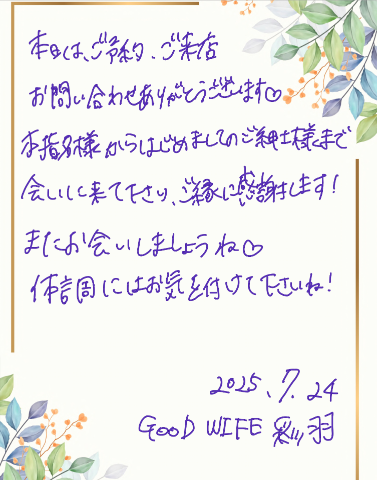 本日は、ご予約、ご来店
お問い合わせありがとうございます♡
本指名様からはじめましてのご紳士様まで
会いに来て下さり、ご縁に感謝します!
またお会いしましょうね♡
体調にはお気を付けて下さいね!
2025.7.24
GOOD WIFE 彩羽